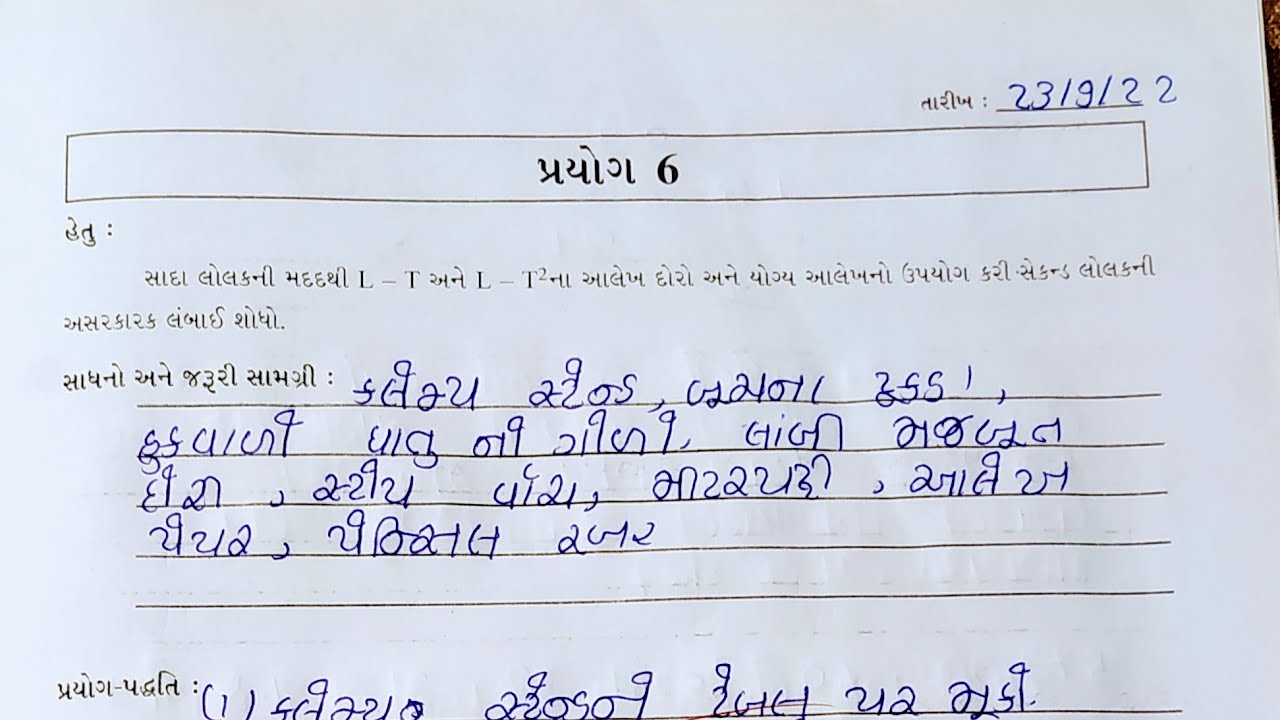 તારીખ : 23/9/22
પ્રયોગ 6
હેતુ :
સાદા લોલકની મદદથી L – T અને L – T²ના આલેખ દોરો અને યોગ્ય આલેખનો ઉપયોગ કરી સેકન્ડ લોલકની
અસરકારક લંબાઈ શોધો.
સાધનો અને જરૂરી સામગ્રી : કલેમ્પ સ્ટેન્ડ, બૂચના ટુકડા,
હુકવાળી ધાતુ ની ગોળી, લાંબી મજબૂત
દોરી, સ્ટોપ વૉચ, મીટરપટ્ટી, આલેખ
પેપર, પેન્સિલ રબર
પ્રયોગ-પદ્ધતિ : (1) કલેમ્પ સ્ટેન્ડને ટેબલ પર મૂકો.